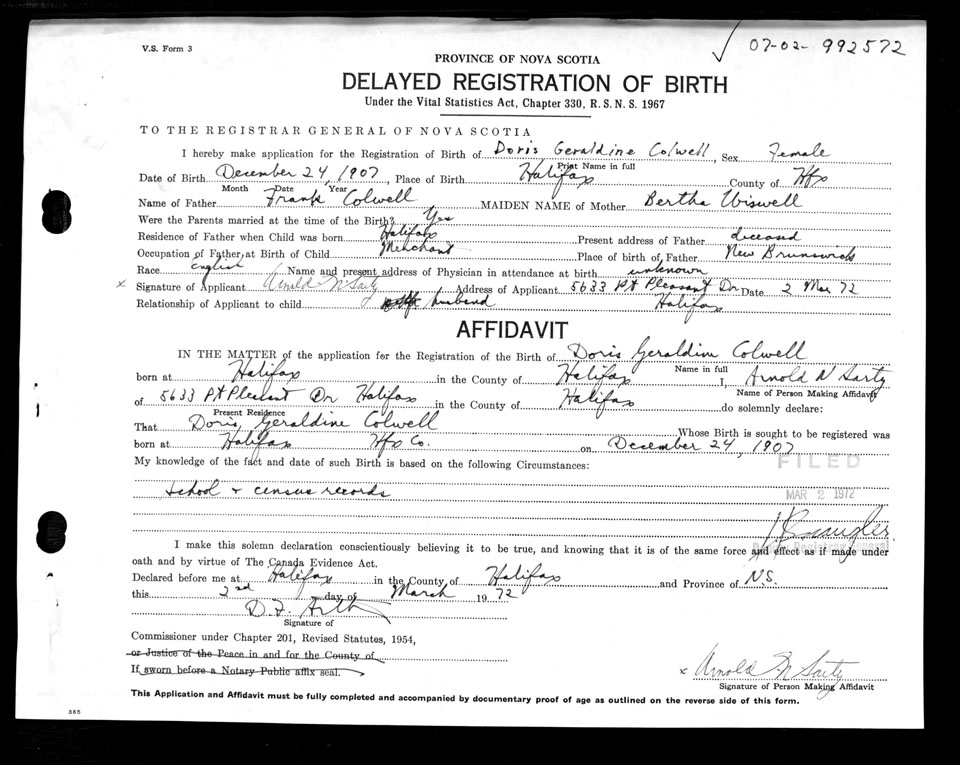 V.S. Form 3
07-02-992572
PROVINCE OF NOVA SCOTIA
DELAYED REGISTRATION OF BIRTH
Under the Vital Statistics Act, Chapter 330, R.S.N.S. 1967
TO THE REGISTRAR GENERAL OF NOVA SCOTIA
I hereby make application for the Registration of Birth of Doris Geraldine Colwell, Sex Female
Print Name in full
Date of Birth December 24, 1907, Place of Birth Halifax County of Hfx
Month Date Year
Name of Father Frank Colwell MAIDEN NAME of Mother Bertha Wiswell
Were the Parents married at the time of the Birth? Yes
Residence of Father when Child was born Halifax Present address of Father deceased
Occupation of Father at Birth of Child Merchant Place of birth of Father New Brunswick
Race English Name and present address of Physician in attendance at birth unknown
x Signature of Applicant Arnold N Sarty Address of Applicant 5633 Pt Pleasant Dr Date 2 Mar 72
Relationship of Applicant to child husband Halifax
AFFIDAVIT
IN THE MATTER of the application for the Registration of the Birth of Doris Geraldine Colwell
Name in full
born at Halifax in the County of Halifax I, Arnold N Sarty
Name of Person Making Affidavit
of 5633 Pt Pleasant Dr Halifax in the County of Halifax do solemnly declare:
Present Residence
That Doris Geraldine Colwell Whose Birth is sought to be registered was
born at Halifax Hfx Co. on December 24, 1907
FILED
My knowledge of the fact and date of such Birth is based on the following Circumstances:
school + census records
MAR 2 1972
I make this solemn declaration conscientiously believing it to be true, and knowing that it is of the same force and effect as if made under
oath and by virtue of The Canada Evidence Act.
Declared before me at Halifax in the County of Halifax and Province of N.S.
this 2nd day of March 1972
Signature of
Commissioner under Chapter 201, Revised Statutes, 1954,
or Justice of the Peace in and for the County of
If sworn before a Notary Public affix seal.
x Arnold N Sarty
Signature of Person Making Affidavit
This Application and Affidavit must be fully completed and accompanied by documentary proof of age as outlined on the reverse side of this form.
385